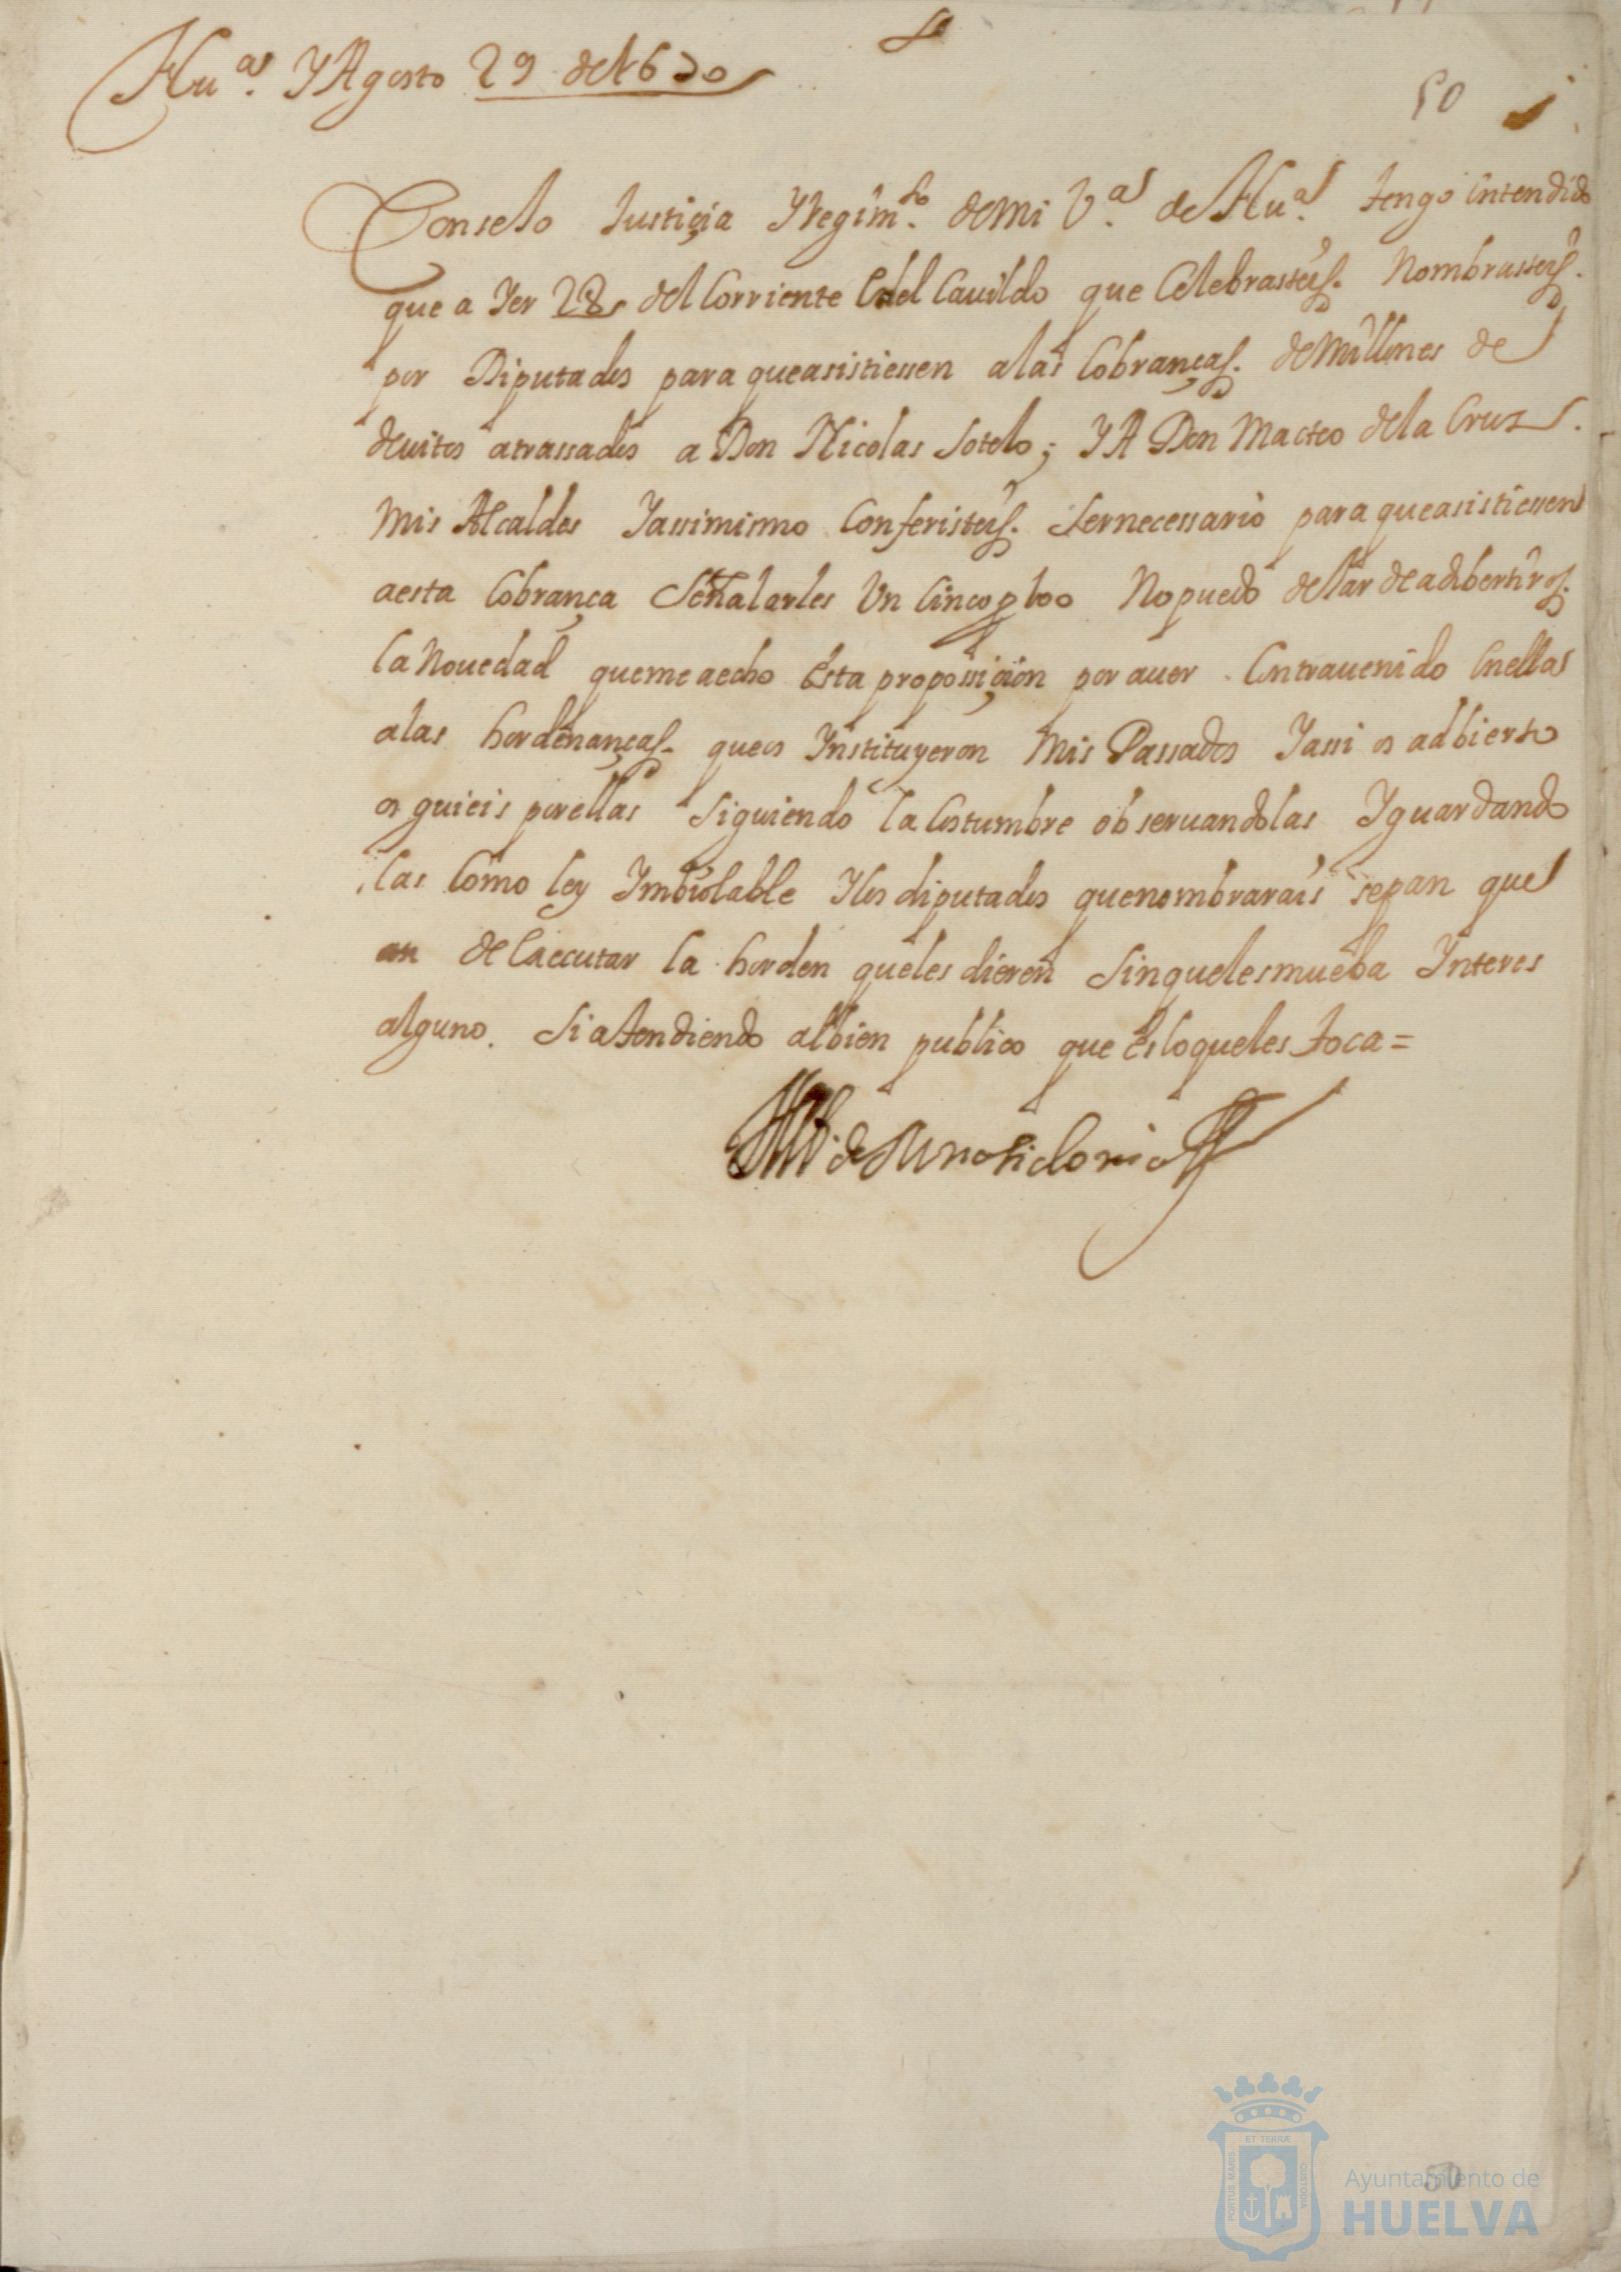 Hu.ª Y Agosto 29 de 1670
50
Conseio Justiçia Y Regim.to de mi V.ª de Hu.ª tengo entendido
que a Yer 28 del Corriente En el Cauildo que Celebrasteis. Nombrasteis.
por Diputados para que asistiessen a las Cobranças. de Millones de
deuitos atrassados a Don Nicolas Sotelo; Y A Don Matteo de la Cruz.
Mis Alcaldes Y assimismo Conferisteis. Ser necessario para que asistiessen
a esta Cobrança Señalarles Un Cinco p 100 No puedo dexar de adbertiros.
la Nouedad que me a echo Esta proposiçion por auer Contrauenido En ellas
a las hordenanças. que os Ynstituyeron Mis Passados Y assi os adbierto
os guieis por ellas Siguiendo la Costumbre obseruandolas Y guardando
las Como ley Ymbiolable Y los diputados que nombrarais sepan que
an de Executar la horden que les dieren Sin que les mueba Ynteres
alguno. Si atendiendo al bien publico que Es lo que les toca =
de Mnasidonia
ET TERRÆ
PORTUS MARIS
CUSTODIA
50
Ayuntamiento de
HUELVA